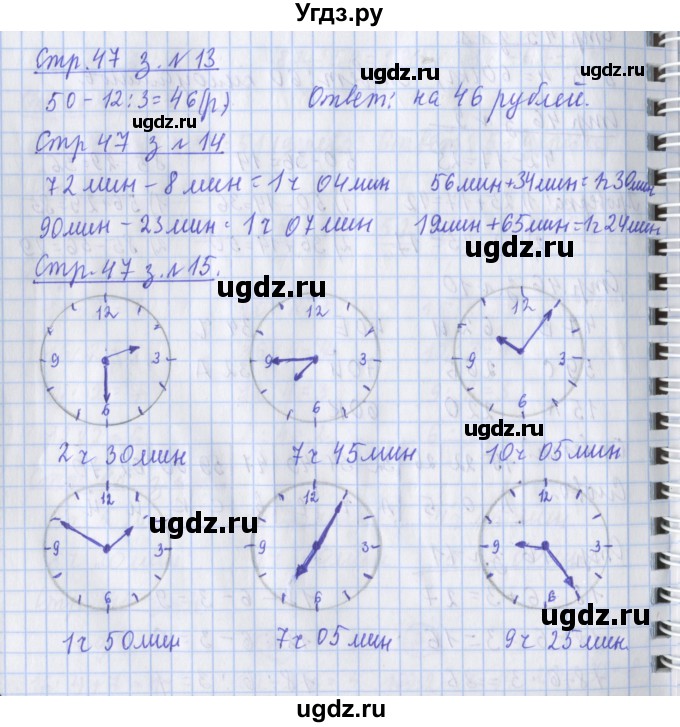 Угдз.ру
Стр. 47 з. №13
ugdz.ru
50-12:3=46(р) Ответ: на 46 рублей.
ugdz.ru
ugdz.ru
Стр 47 з №14
72мин - 8мин = 1ч 04мин 56мин+34мин=1ч30мин
ugdz.ru
90мин - 23мин = 1ч 07мин 19мин+65мин=1ч24мин
ugdz.ru
Стр. 47 з. №15.
ugdz.ru
12 3 6 9
12 3 6 9
12 3 6 9
ugdz.ru
2ч 30мин 7ч 45мин 10ч 05мин
ugdz.ru
12 3 6 9
12 3 6 9
12 3 6 9
ugdz.ru
1ч 50мин 7ч 05мин 9ч 25мин
ugdz.ru